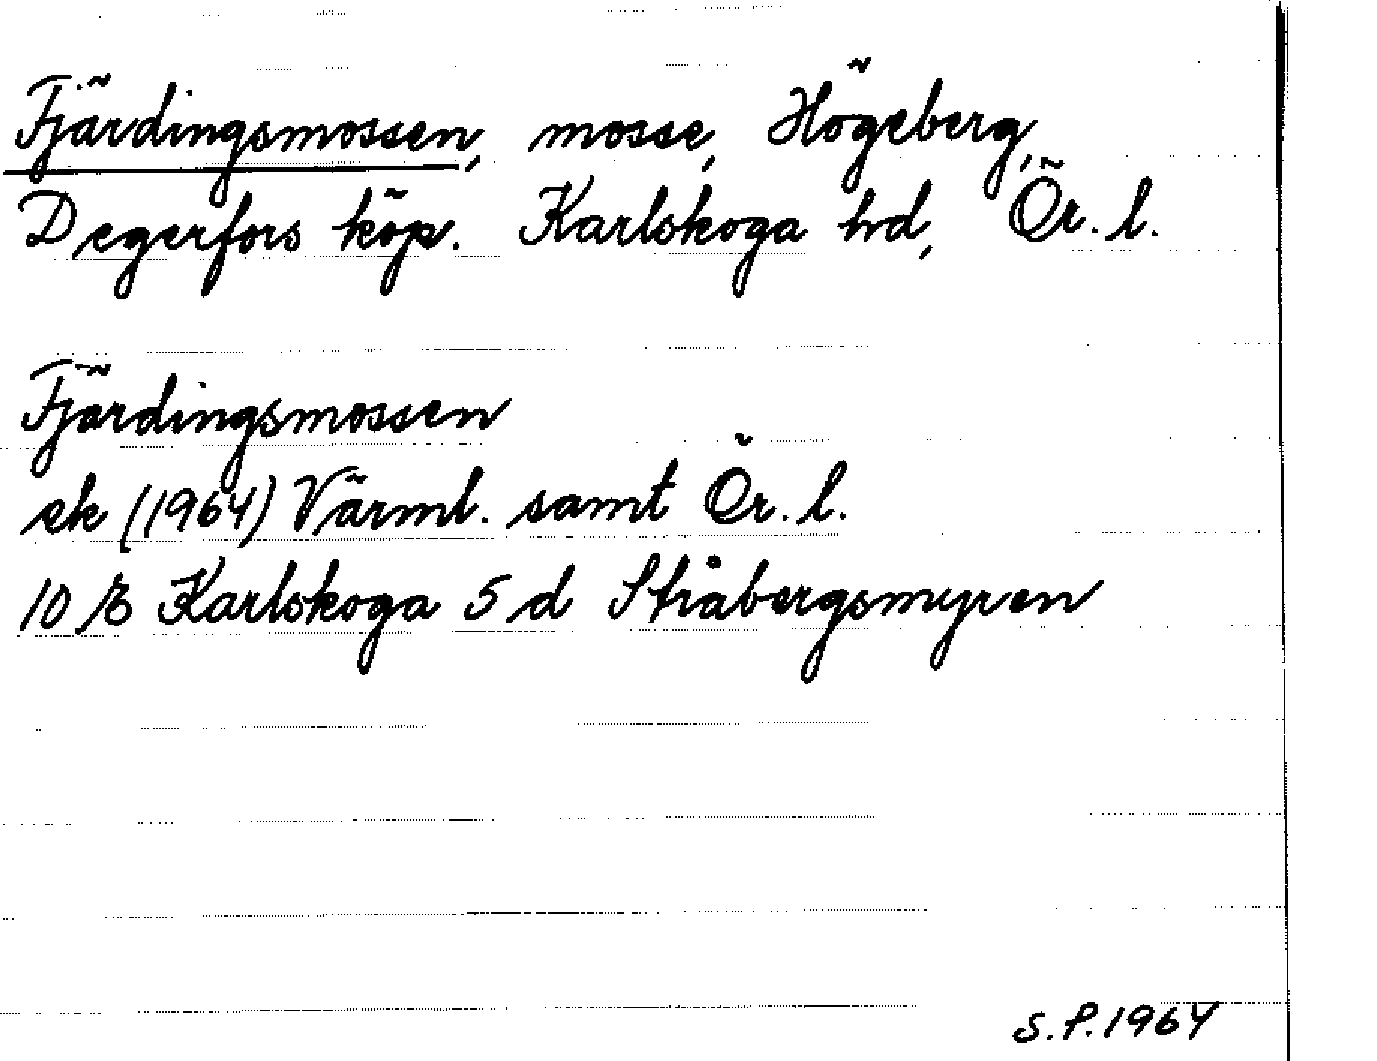 Fjärdingsmossen, mosse, Högeberg,
Degerfors köp. Karlskoga hd, Ör. l.
Fjärdingsmossen
ek (1964) Värml. samt Ör. l.
10 E Karlskoga 5 d Stråbergsmyren
S.P. 1964